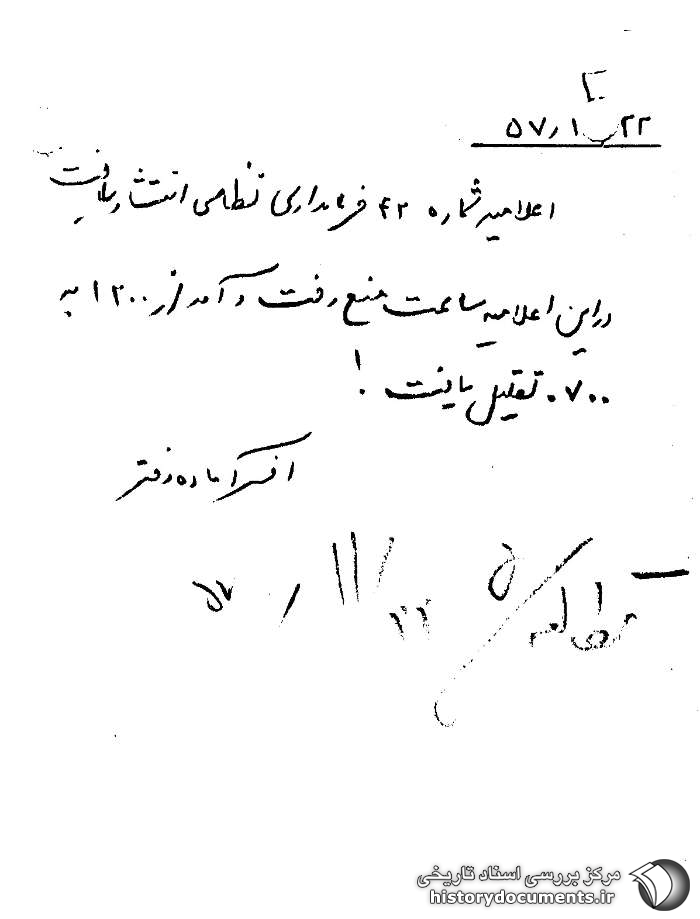 ۲۲ ر ۱ ر ۵۷
اعلامیه شماره ۴۲ فرمانداری نظامی انتشار یافت
در این اعلامیه ساعت منع رفت و آمد از ۱۲۰۰ به
۰۷۰۰ تقلیل یافت !
افسر آماده دفتر
مطالعه
۲۲ / ۱۱ / ۵۷
مرکز بررسی اسناد تاریخی
historydocuments.ir